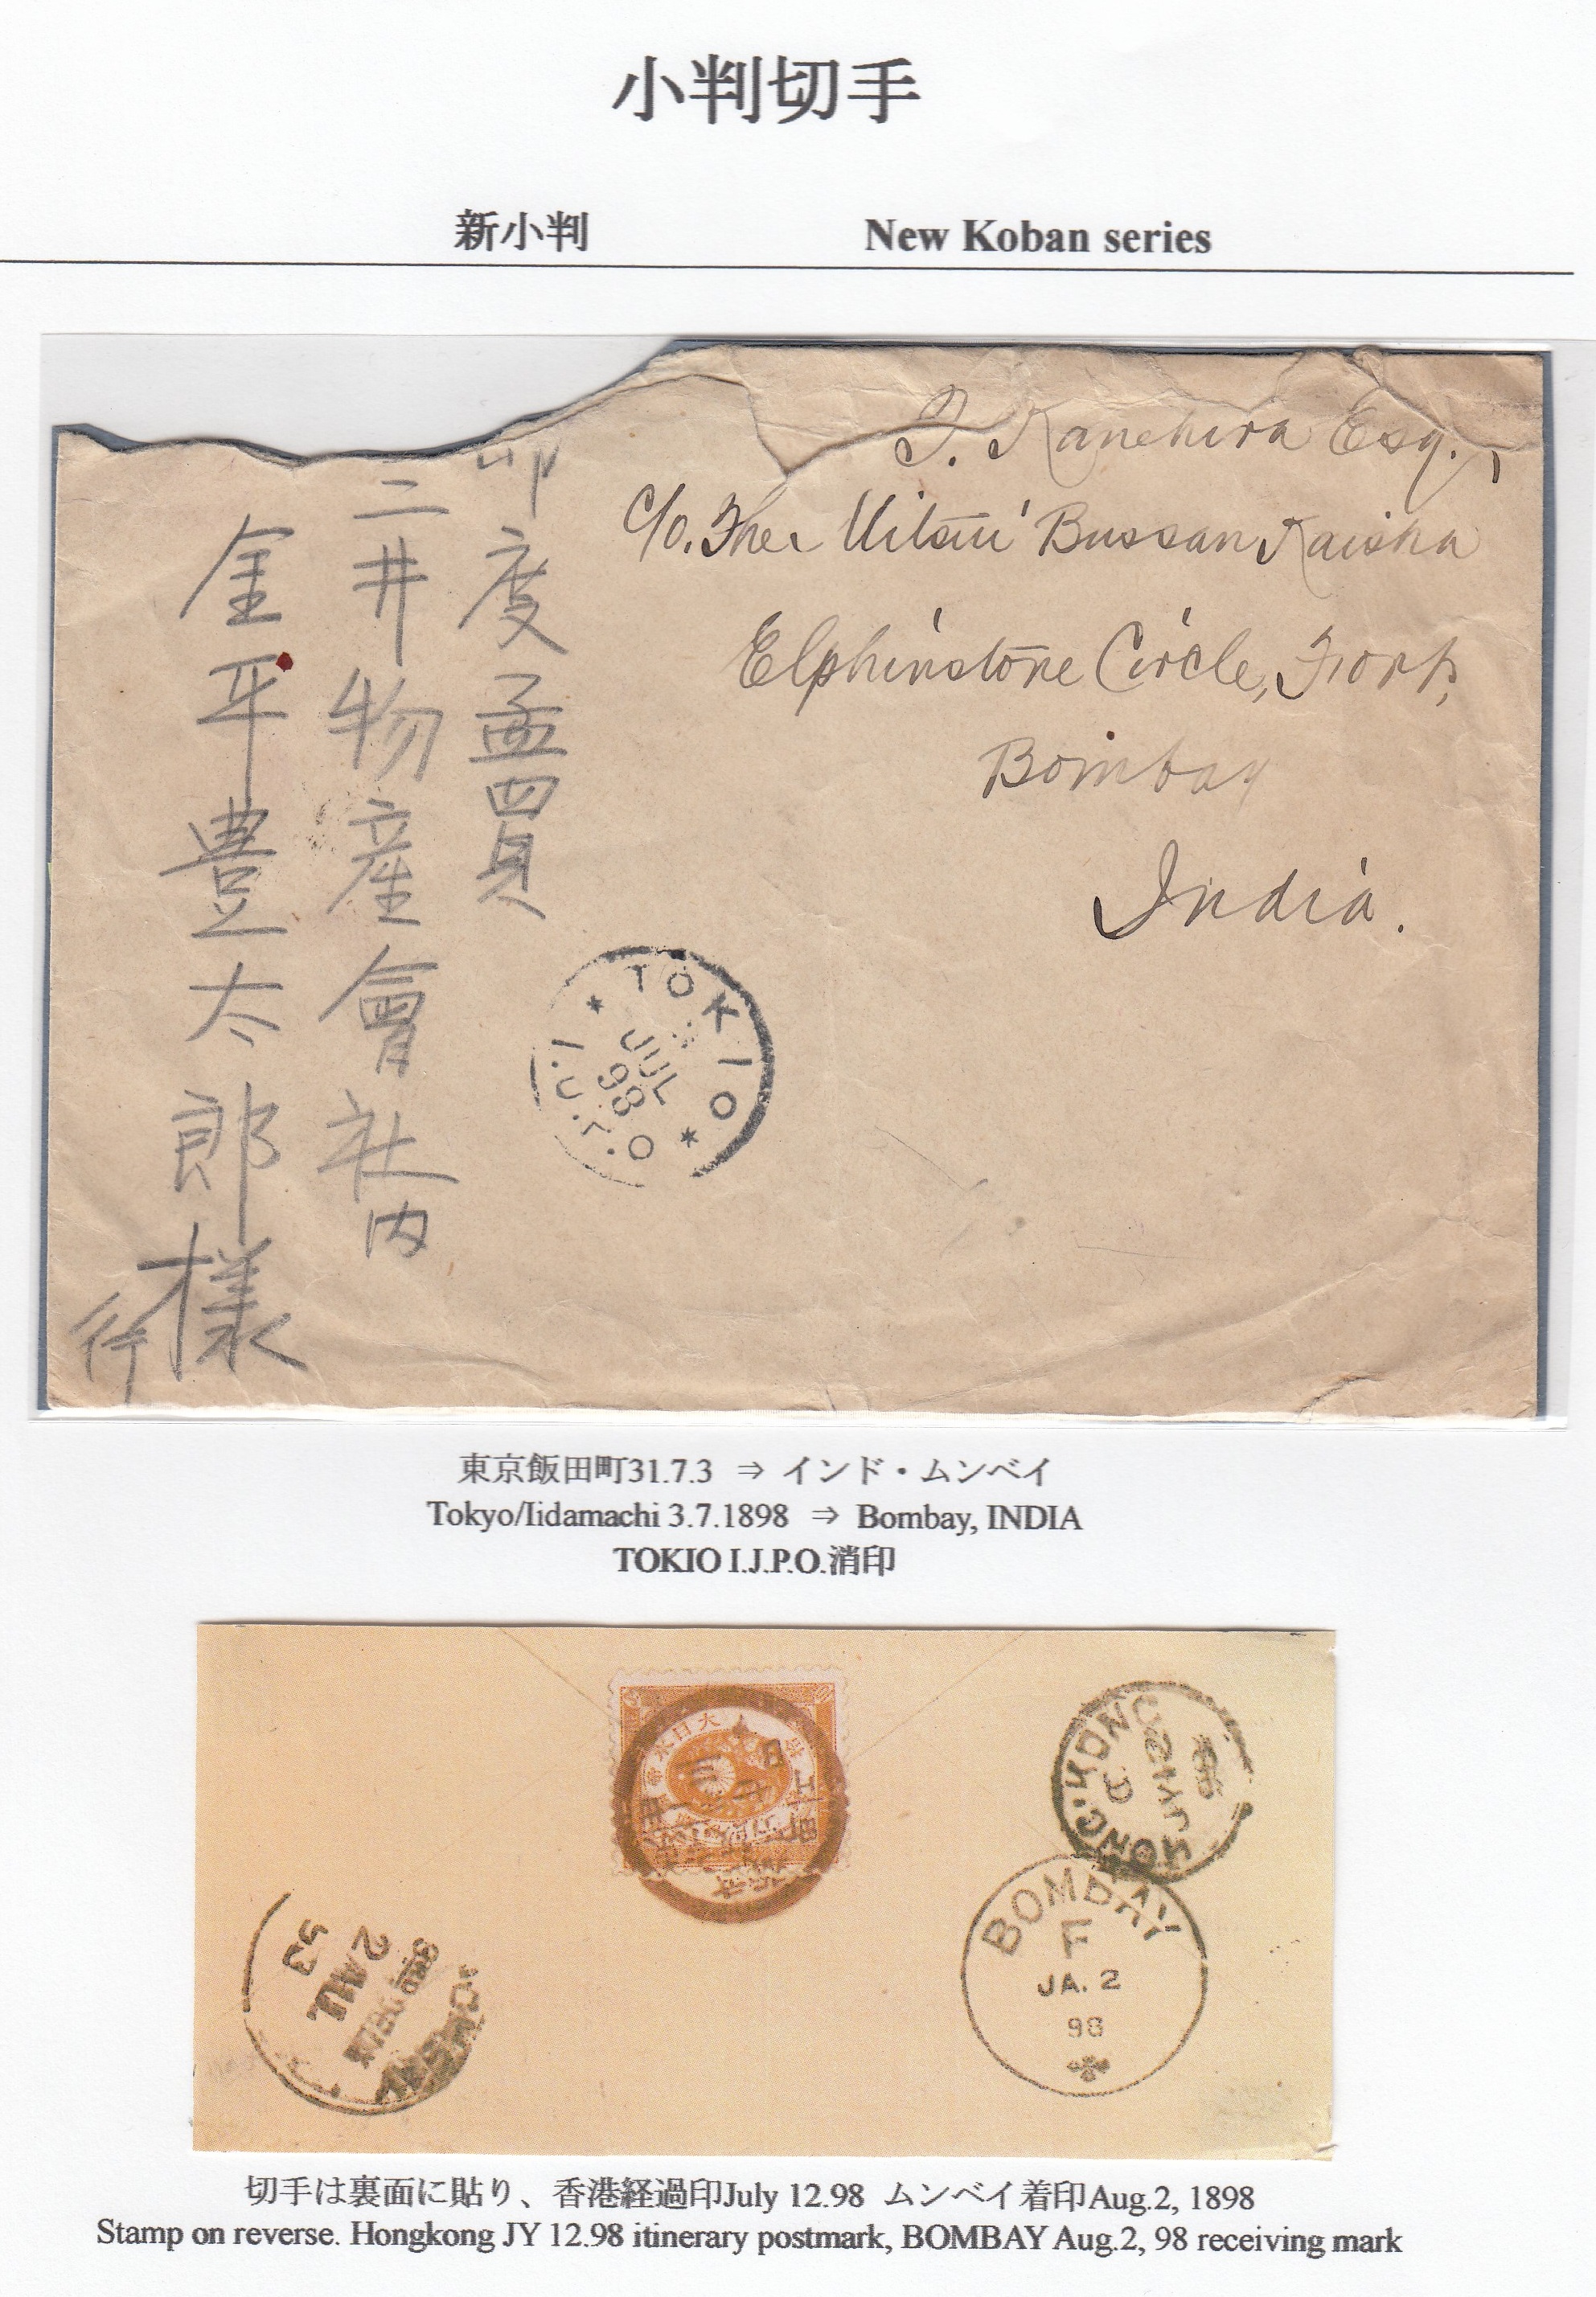 小判切手
新小判 New Koban series
T. Kanehira Esq.,
c/o. The Mitsui Bussan Kaisha
Elphinstone Circle, Fort,
Bombay
India.
印度孟買
三井物産會社内
金平豊太郎様
行
TOKIO
JUL
98
I.J.P.O
東京飯田町31.7.3 ⇒ インド・ムンベイ
Tokyo/Iidamachi 3.7.1898 ⇒ Bombay, INDIA
TOKIO I.J.P.O.消印
大日本帝
HONG.KONG
D
JY 12
98
BOMBAY
F
JA. 2
98
3RD
2 AU.
切手は裏面に貼り、香港経過印July 12.98 ムンベイ着印Aug.2, 1898
Stamp on reverse. Hongkong JY 12.98 itinerary postmark, BOMBAY Aug.2, 98 receiving mark